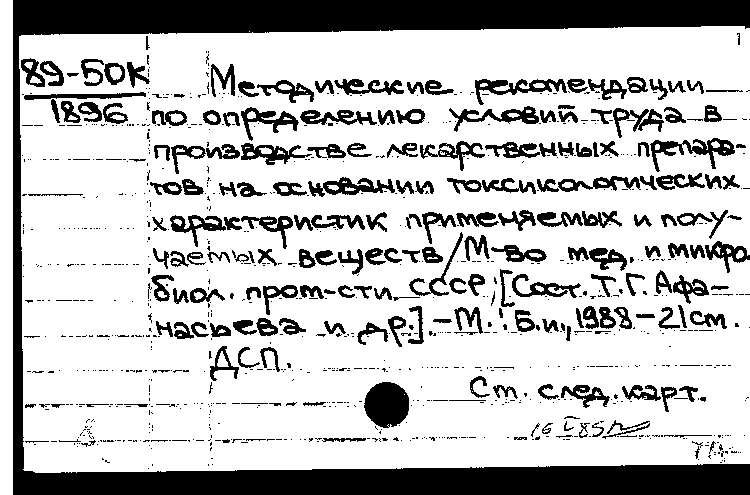 1
89-50К
1896
Методические рекомендации
по определению условий труда в
производстве лекарственных препара-
тов на основании токсикологических
характеристик применяемых и полу-
чаемых веществ/М-во мед. и микро
биол. пром-сти СССР; [Сост. Т.Г. Афа-
насьева и др.]. - М. : Б.и., 1988 - 21 см.
ДСП.
Ст. след. карт.